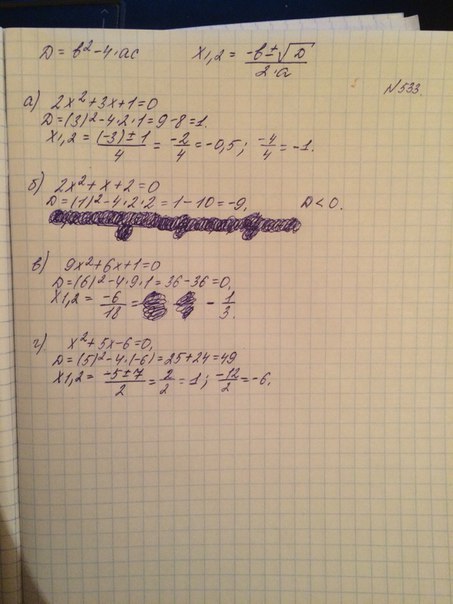 D = b² - 4·ac X1,2 = (-b ± √D) / (2·a)
N533.
а) 2x² + 3x + 1 = 0
D = (3)² - 4·2·1 = 9 - 8 = 1.
X1,2 = ((-3) ± 1) / 4 = -2/4 = -0,5; -4/4 = -1.
б) 2x² + x + 2 = 0
D = (1)² - 4·2·2 = 1 - 10 = -9, D < 0.
в) 9x² + 6x + 1 = 0
D = (6)² - 4·9·1 = 36 - 36 = 0,
X1,2 = -6/18 = - 1/3.
г) x² + 5x - 6 = 0,
D = (5)² - 4·(-6) = 25 + 24 = 49
X1,2 = (-5 ± 7) / 2 = 2/2 = 1; -12/2 = -6.